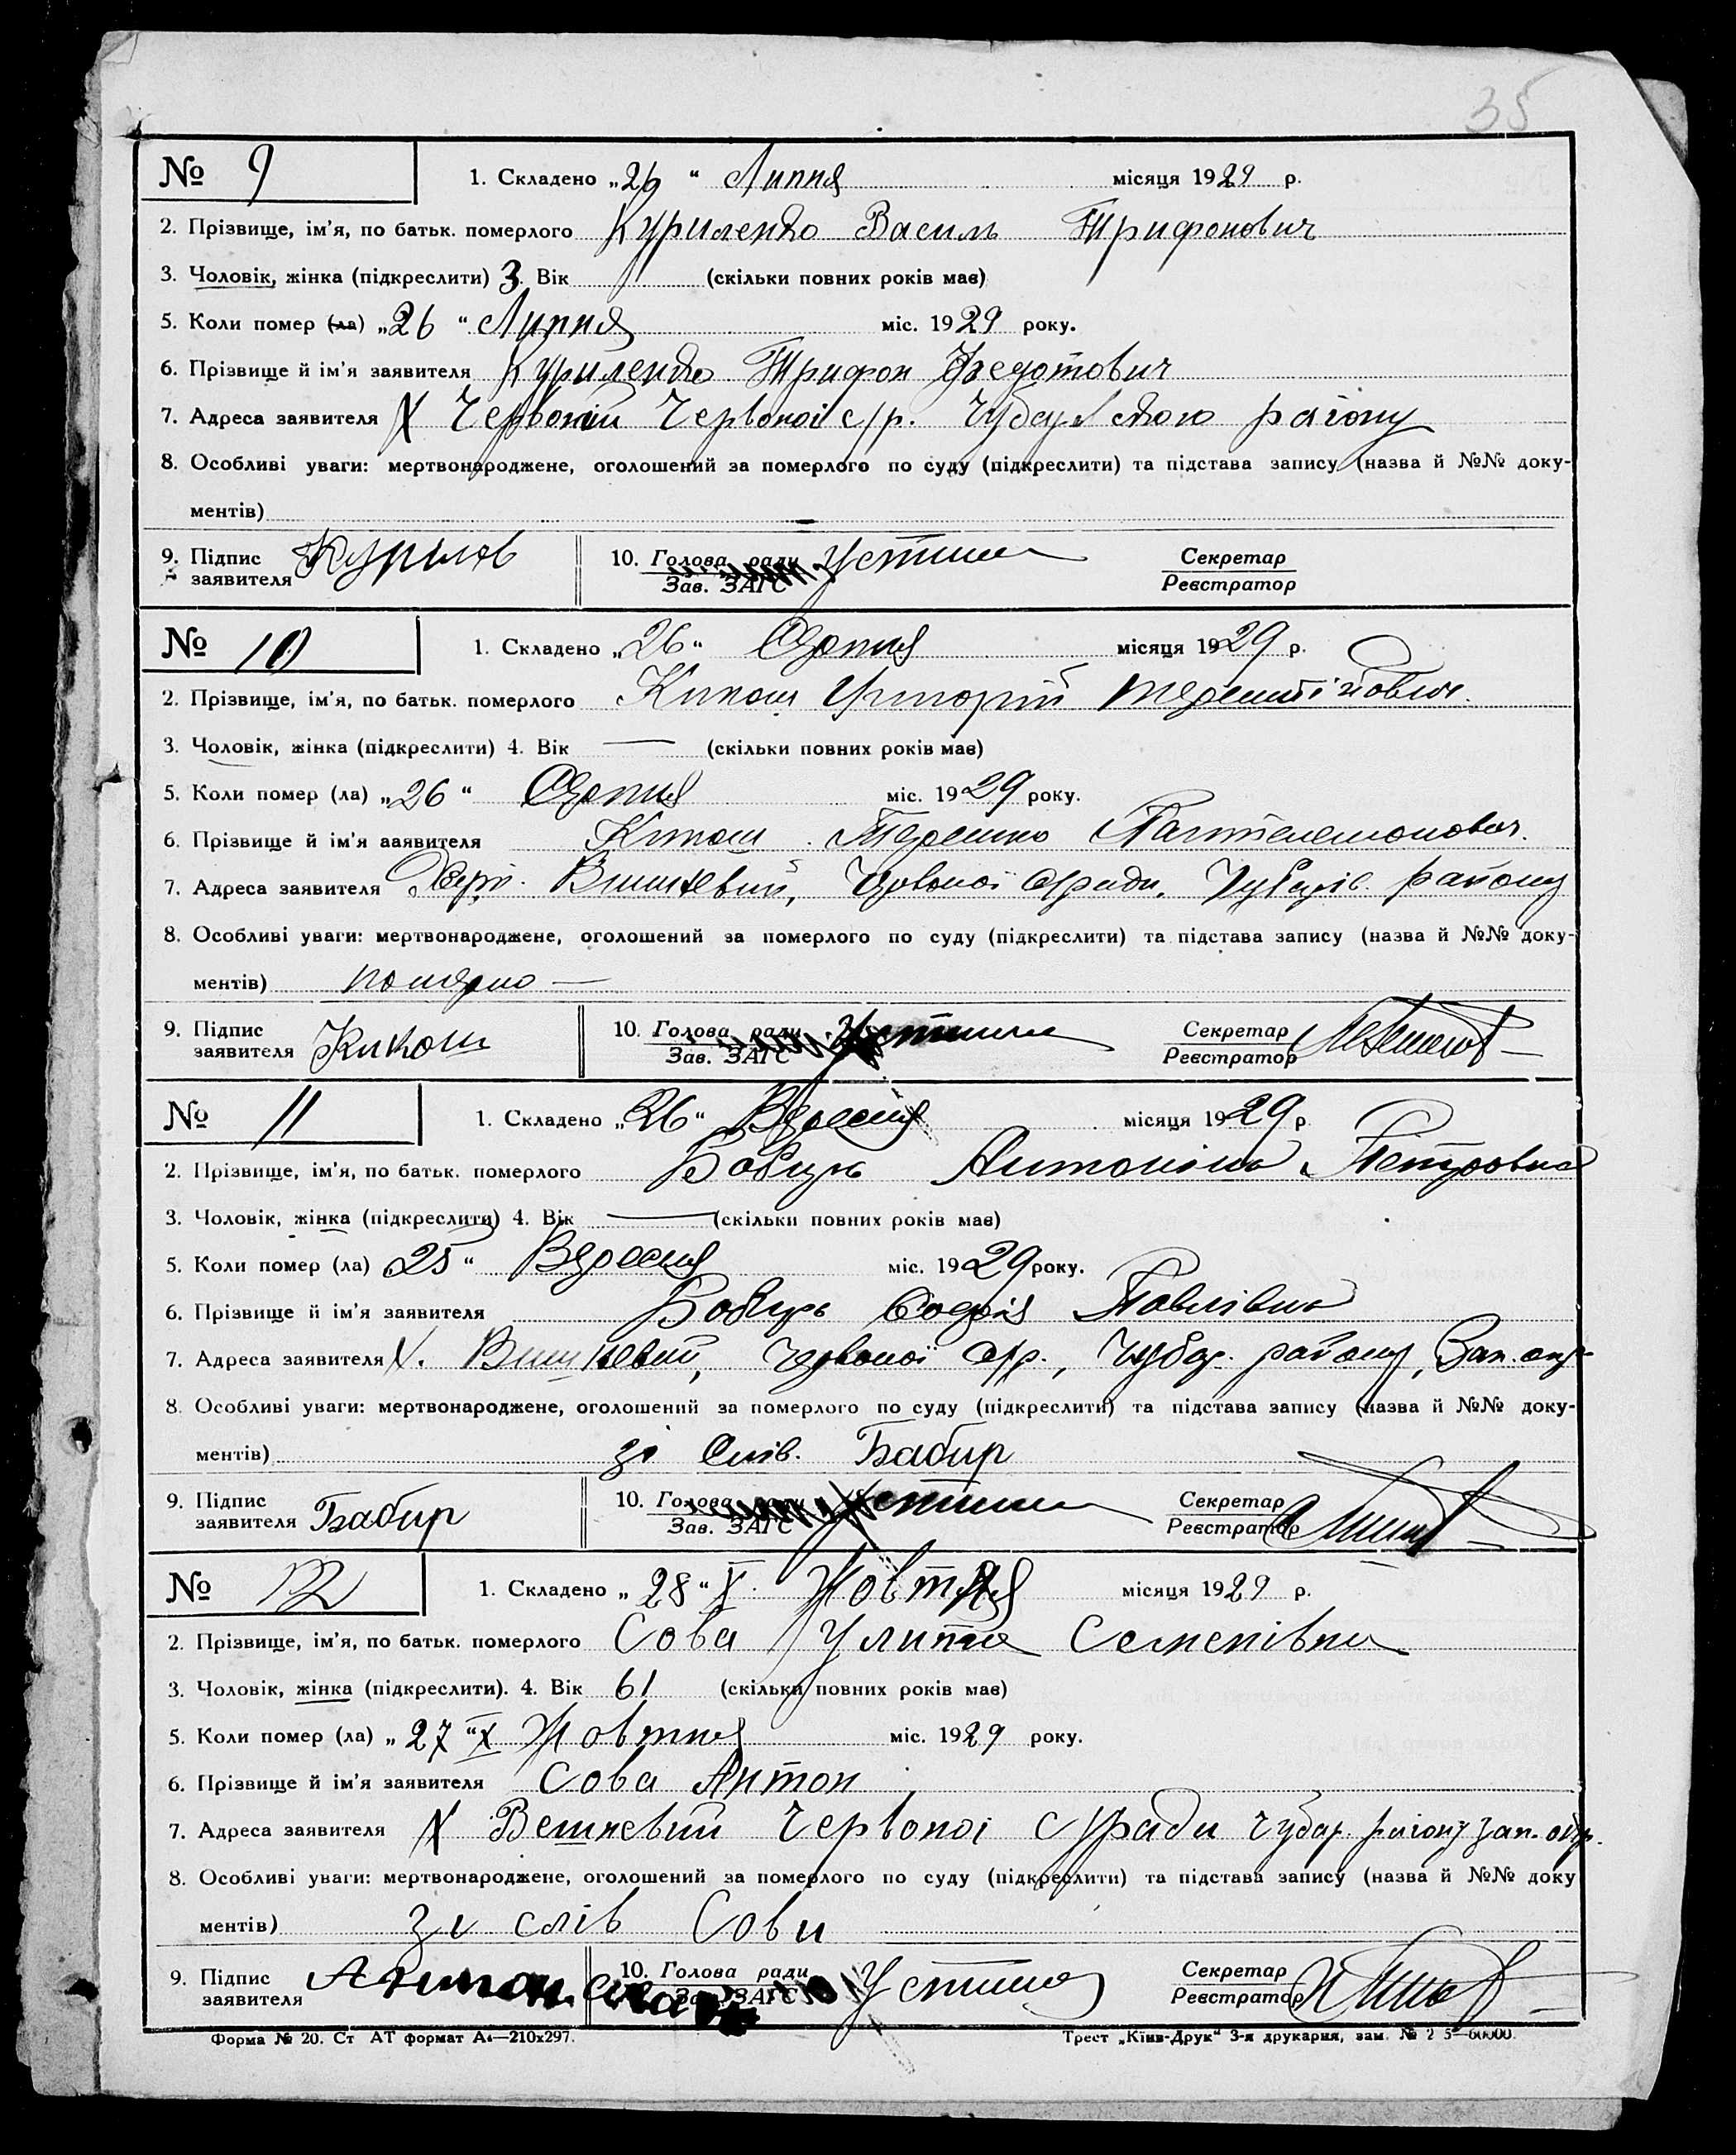 35
№ 9 1. Складено „26“ Липня місяця 1929 р.
2. Прізвище, ім'я, по батьк. померлого Куриленко Василь Трифонович
3. Чоловік, жінка (підкреслити) 3. Вік (скільки повних років має)
5. Коли помер (ла) „26“ Липня міс. 1929 року.
6. Прізвище й ім'я заявителя Куриленко Трифон Федотович
7. Адреса заявителя Х Червоний Червоної с/р. Чубарівского району
8. Особливі уваги: мертвонароджене, оголошений за померлого по суду (підкреслити) та підстава запису (назва й №№ доку-
ментів)
9. Підпис заявителя 10. Голова ради Устим Секретар
Зав. ЗАГС Реєстратор
№ 10 1. Складено „26“ Серпня місяця 1929 р.
2. Прізвище, ім'я, по батьк. померлого Кикош Григорій
3. Чоловік, жінка (підкреслити) 4. Вік — (скільки повних років має)
5. Коли помер (ла) „26“ Серпня міс. 1929 року.
6. Прізвище й ім'я заявителя Кикош Терешко Пантелемонович.
7. Адреса заявителя Вишневий, Червоної с/ради, Чубарів. району
8. Особливі уваги: мертвонароджене, оголошений за померлого по суду (підкреслити) та підстава запису (назва й №№ доку-
ментів)
9. Підпис заявителя Кикош 10. Голова ради Секретар
Зав. ЗАГС Реєстратор
№ 11 1. Складено „26“ Вересня місяця 1929 р
2. Прізвище, ім'я, по батьк. померлого Бобирь Антоніна Петровна
3. Чоловік, жінка (підкреслити) 4. Вік — (скільки повних років має)
5. Коли помер (ла) 25“ Вересня міс. 1929 року.
6. Прізвище й ім'я заявителя Бобирь Софія Павлівна
7. Адреса заявителя х. Вишневий, Червоної с/р., Чубар. району, Зап. окр
8. Особливі уваги: мертвонароджене, оголошений за померлого по суду (підкреслити) та підстава запису (назва й №№ доку-
ментів) зі слів. Бабир
9. Підпис заявителя Бабир 10. Голова ради Секретар
Зав. ЗАГС Реєстратор
№ 12 1. Складено „28“ X. Жовтня місяця 1929 р.
2. Прізвище, ім'я, по батьк. померлого Сова Улита Семенівна
3. Чоловік, жінка (підкреслити). 4. Вік 61 (скільки повних років має)
5. Коли помер (ла) „27“ X Жовтня міс. 1929 року.
6. Прізвище й ім'я заявителя Сова Антон
7. Адреса заявителя Х Вешневий Червоної с/ради Чубар. району зап. окр.
8. Особливі уваги: мертвонароджене, оголошений за померлого по суду (підкреслити) та підстава запису (назва й №№ доку
ментів) зі слів Сови
9. Підпис заявителя Антон Сова 10. Голова ради Секретар
Зав. ЗАГС Реєстратор
Форма № 20. Ст АТ формат А4—210х297. Трест „Київ-Друк“ 3-я друкарня, зам. №